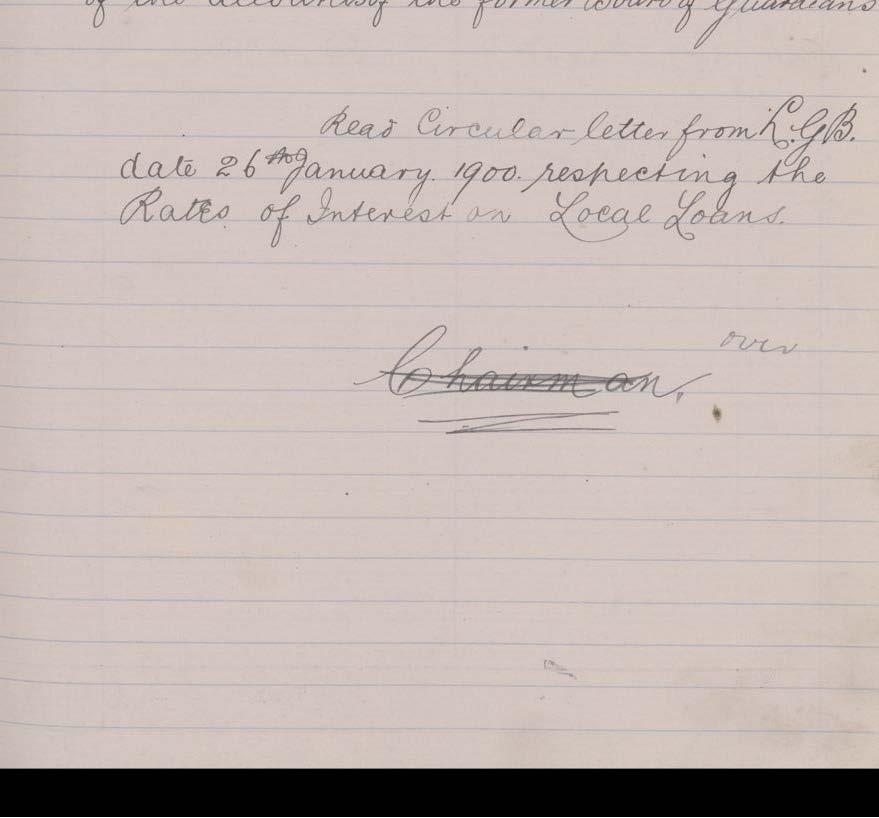 of the accounts of the former Board of Guardians
Read Circular letter from L.G.B.
date 26th January. 1900. respecting the
Rates of Interest on Local Loans.
over
Chairman.